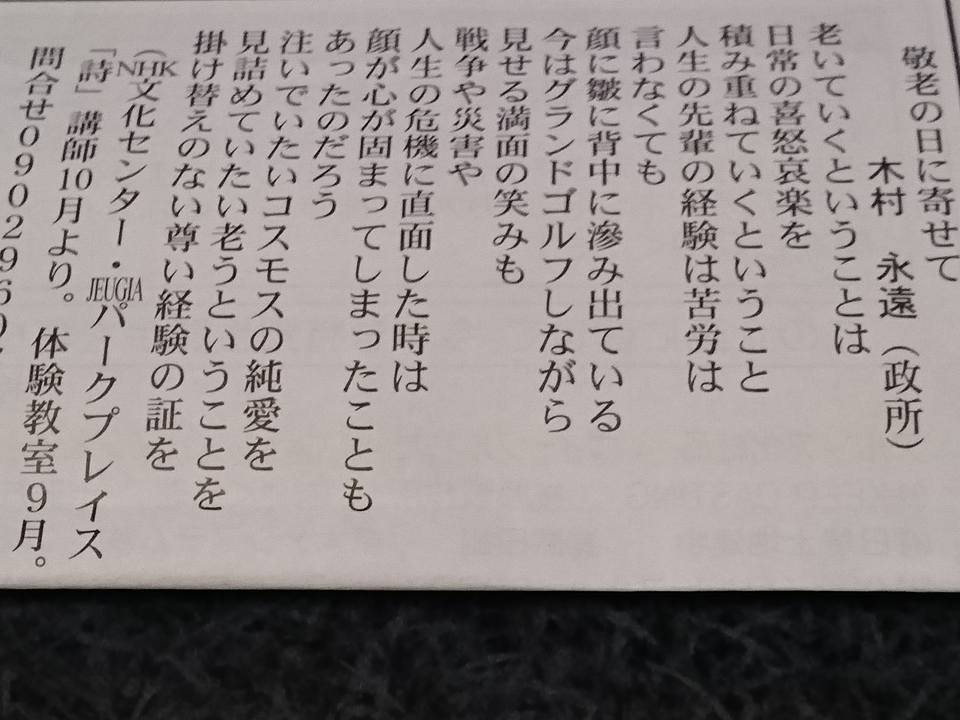 敬老の日に寄せて
木村　永遠（政所）
老いていくということは
日常の喜怒哀楽を
積み重ねていくということ
人生の先輩の経験は苦労は
言わなくても
顔に皺に背中に滲み出ている
今はグランドゴルフしながら
見せる満面の笑みも
戦争や災害や
人生の危機に直面した時は
顔が心が固まってしまったことも
あったのだろう
注いでいたいコスモスの純愛を
見詰めていたい老うということを
掛け替えのない尊い経験の証を
（NHK文化センター・JEUGIAパークプレイス
「詩」講師10月より。体験教室9月。
問合せ0902969